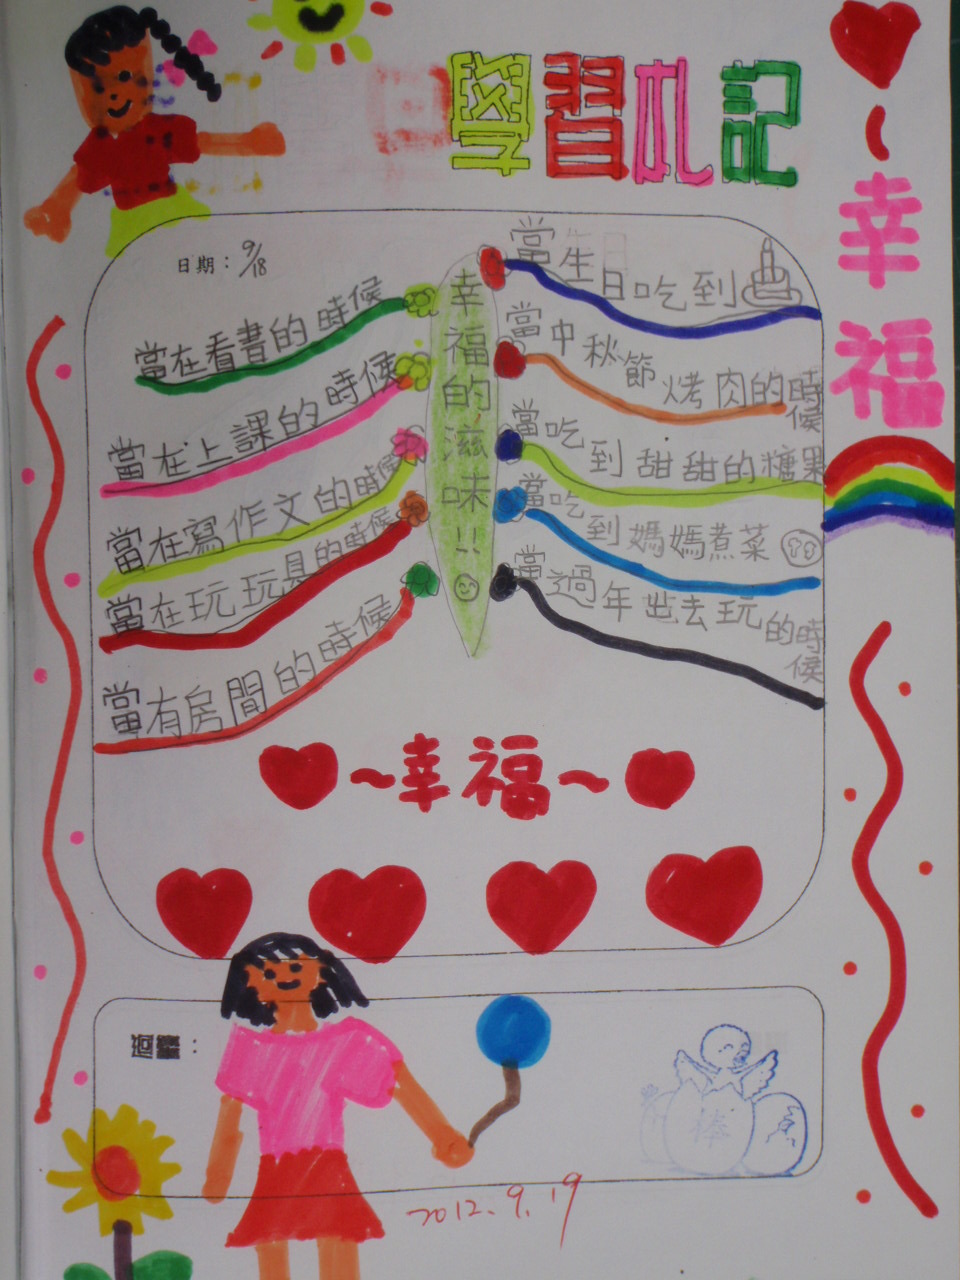 學習札記
~幸福
日期：9/18
幸福的滋味!!
當在看書的時候
當在上課的時候
當在寫作文的時候
當在玩玩具的時候
當有房間的時候
當生日吃到
當中秋節烤肉的時候
當吃到甜甜的糖果
當吃到媽媽煮菜
當過年出去玩的時候
~幸福~
棒
2012.9.19